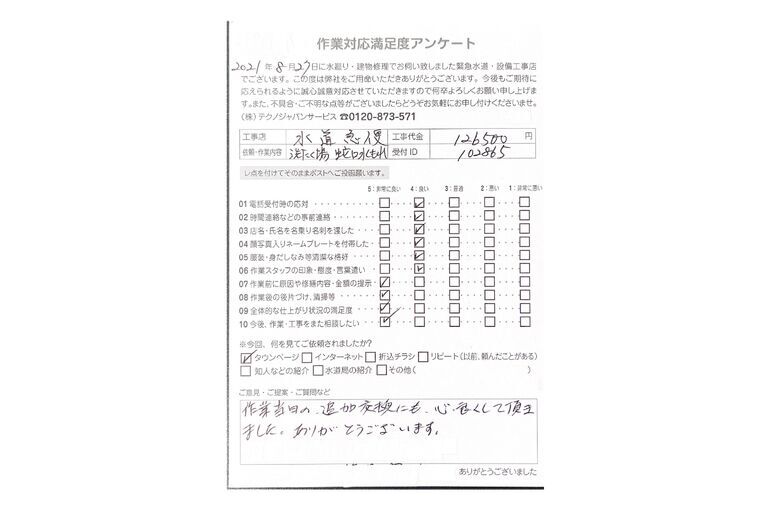 作業対応満足度アンケート
2021年8月27日に水廻り・建物修理でお伺い致しました緊急水道・設備工事店
でございます。この度は弊社をご用命いただきありがとうございます。今後もご期待に
応えられるように誠心誠意対応させていただきますので何卒よろしくお願い申し上げま
す。また、不具合・ご不明な点等がございましたらどうぞお気軽にお申し付けくださいませ。
(株)テクノジャパンサービス ☎0120-873-571
工事店 水道急便 工事代金 126500円
依頼・作業内容 洗たく場 蛇口水もれ 受付ID 102865
レ点を付けてそのままポストへご投函願います。
5:非常に良い 4:良い 3:普通 2:悪い 1:非常に悪い
01 電話受付時の応対
02 時間連絡などの事前連絡
03 店名・氏名を名乗り名刺を渡した
04 顔写真入りネームプレートを付帯した
05 服装・身だしなみ等清潔な格好
06 作業スタッフの印象・態度・言葉遣い
07 作業前に原因や修繕内容・金額の提示
08 作業後の後片づけ、清掃等
09 全体的な仕上がり状況の満足度
10 今後、作業・工事をまた相談したい
※今回、何を見てご依頼されましたか?
タウンページ インターネット 折込チラシ リピート(以前、頼んだことがある)
知人などの紹介 水道局の紹介 その他( )
ご意見・ご提案・ご質問など
作業当日の、追加交換にも、心良くして頂き
ました。ありがとうございます。
ありがとうございました